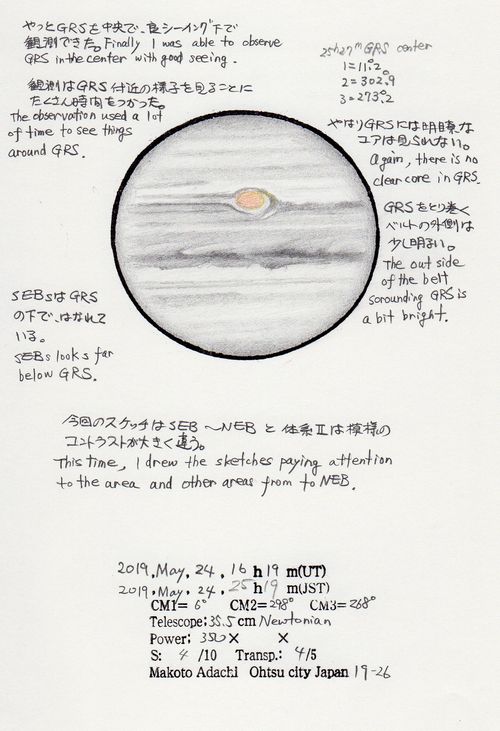 やっとGRSを中央で、良シーイング下で
観測できた。Finally I was able to observe
GRS in the center with good seeing.
観測はGRS付近の様子を見ることに
たくさん時間をつかった。
The observation used a lot
of time to see things
around GRS.
25h27m GRS center
1=11.°2
2=302.9
3=273.°2
やはりGRSには明瞭な
コアは見られない。
Again, there is no
clear core in GRS.
GRSをとり巻く
ベルトの外側は
少し明るい。
The out side
of the belt
sorounding GRS is
a bit bright.
SEBsはGRS
の下で、はなれて
いる。
SEBs looks far
below GRS.
今回のスケッチはSEB〜NEBと体系Ⅱは模様の
コントラストが大きく違う。
This time, I drew the sketches paying attention
to the area and other areas from to NEB.
2019, May, 24, 16 h 19 m(UT)
2019, May, 24, 25 h 19 m(JST)
CM1= 6° CM2= 298° CM3= 268°
Telescope: 35.5 cm Newtonian
Power: 350 × ×
S: 4 /10 Transp.: 4/5
Makoto Adachi Ohtsu city Japan 19-26